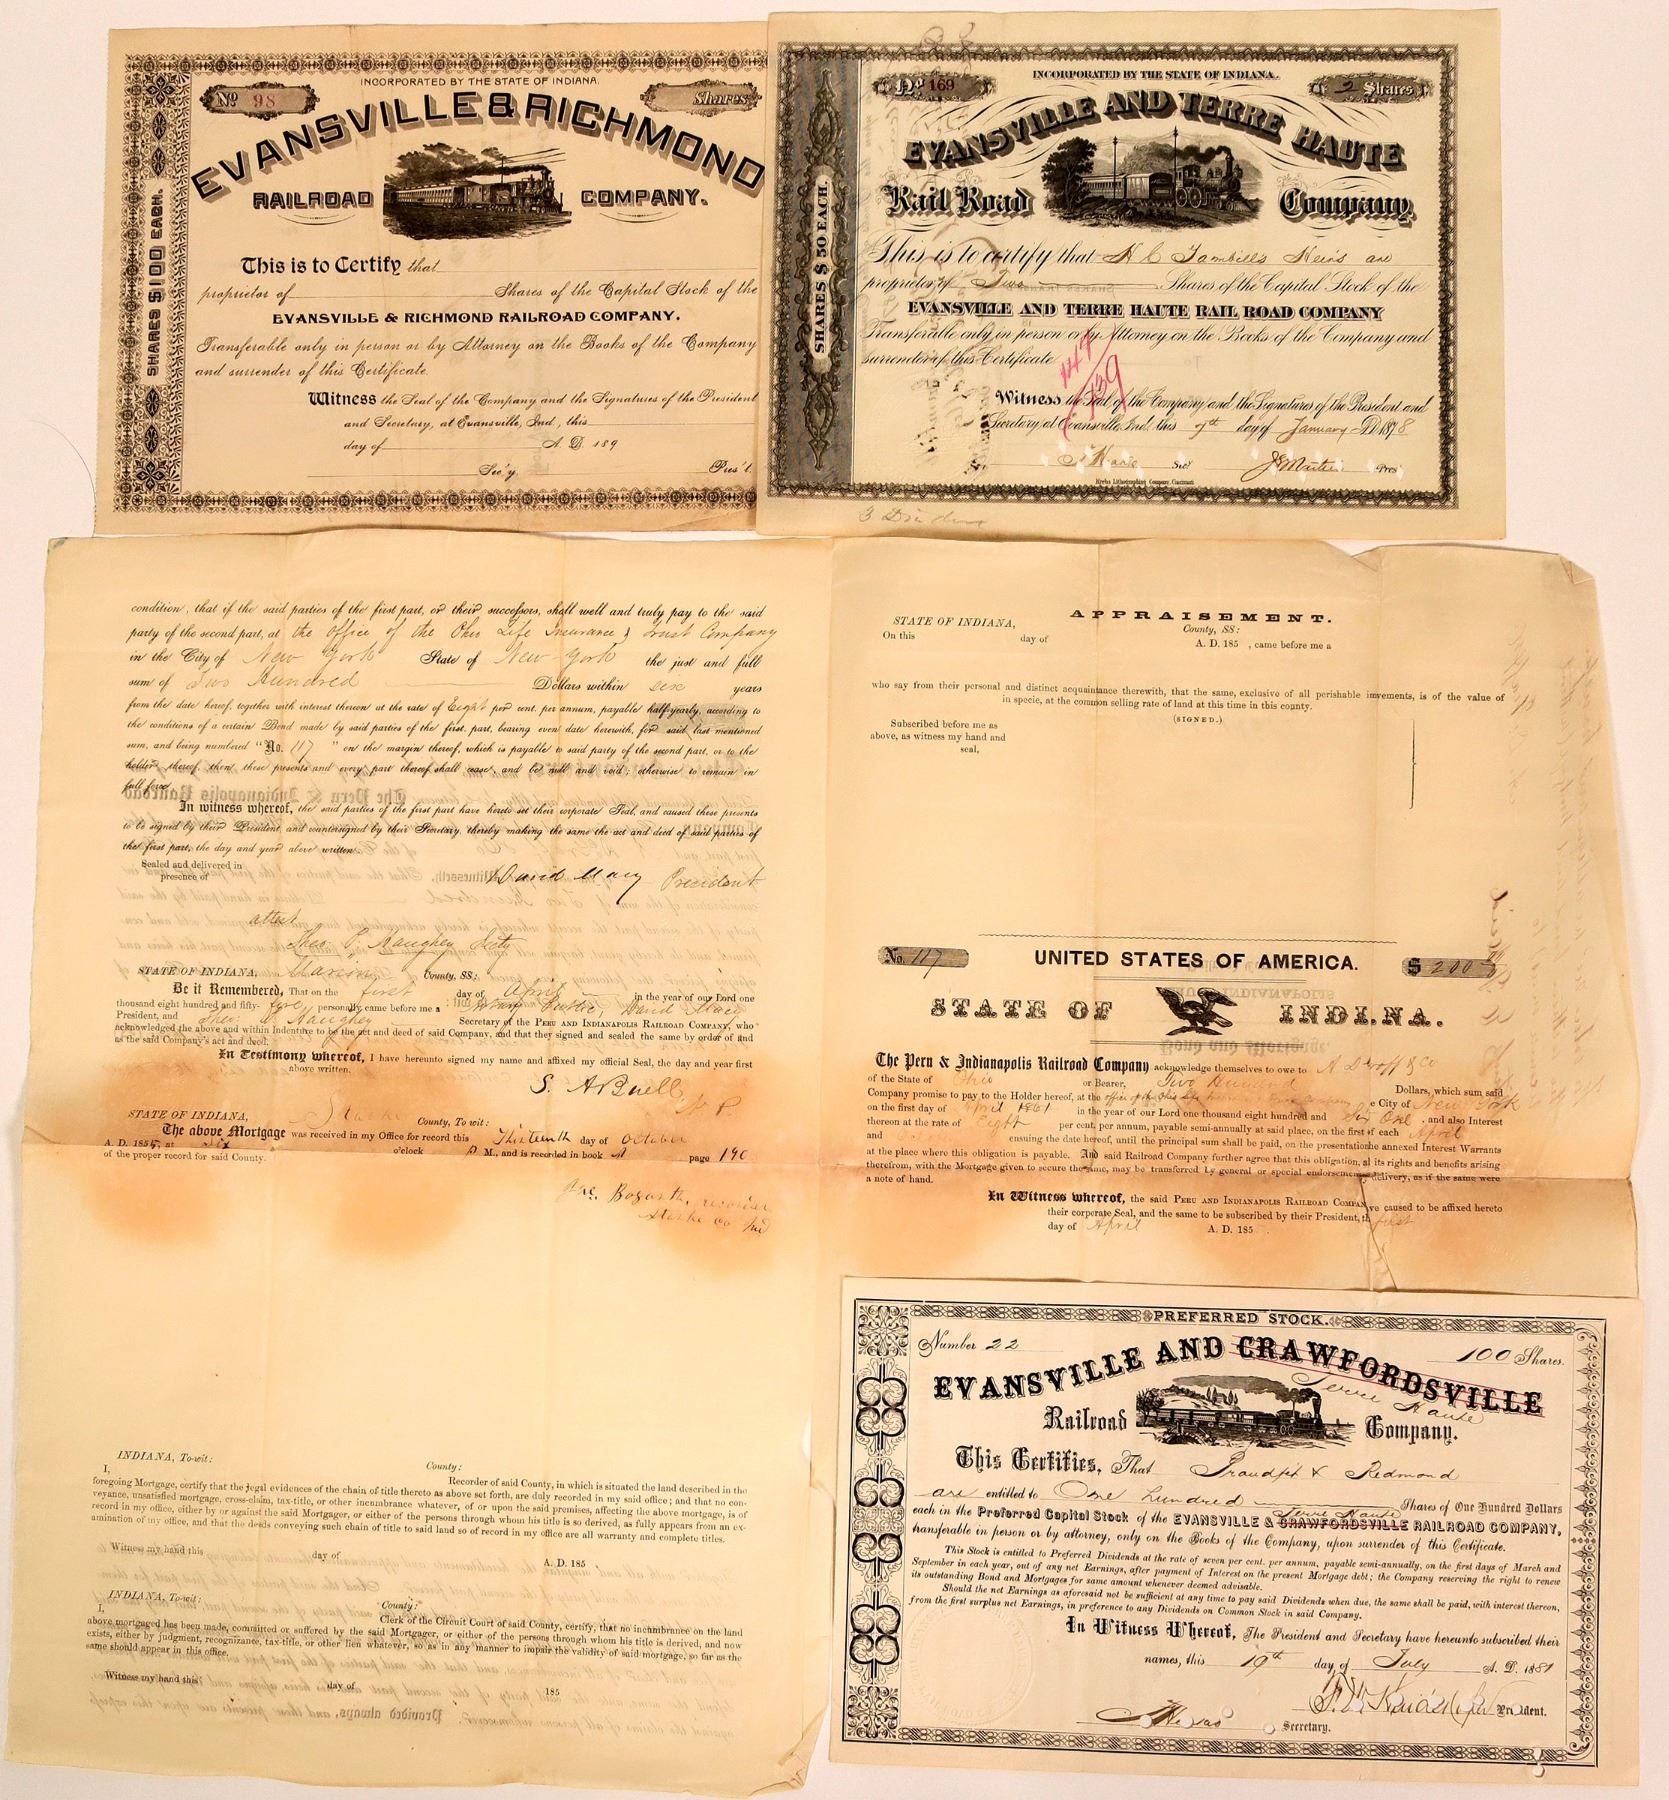 INCORPORATED BY THE STATE OF INDIANA.
No 98
Shares
EVANSVILLE & RICHMOND
RAILROAD COMPANY.
SHARES $100 EACH.
This is to Certify that
proprietor of Shares of the Capital Stock of the
EVANSVILLE & RICHMOND RAILROAD COMPANY.
Transferable only in person or by Attorney on the Books of the Company
and surrender of this Certificate.
Witness the Seal of the Company and the Signatures of the President
and Secretary, at Evansville, Ind., this
day of A. D. 189
Sec'y. Pres't.
INCORPORATED BY THE STATE OF INDIANA.
No 169
2 Shares
EVANSVILLE AND TERRE HAUTE
Rail Road Company
SHARES $50 EACH.
This is to certify that H C Heirs are
proprietor of Two Shares of the Capital Stock of the
EVANSVILLE AND TERRE HAUTE RAIL ROAD COMPANY
Transferable only in person or by Attorney on the Books of the Company and
surrender of this Certificate
Witness the Seal of the Company and the Signatures of the President and
Secretary at Evansville, Ind. this 7th day of January A.D. 1878
Secy Pres
Krebs Lithographing Company, Cincinnati
condition, that if the said parties of the first part, or their successors, shall well and truly pay to the said
party of the second part, at the office of the Ohio Life Insurance & Trust Company
in the City of New York State of New York the just and full
sum of Two Hundred Dollars within six years
from the date hereof, together with interest thereon at the rate of Eight per cent. per annum, payable half-yearly, according to
the conditions of a certain Bond made by said parties of the first part, bearing even date herewith, for said last mentioned
sum, and being numbered "No. 117 " on the margin thereof, which is payable to said party of the second part, or to the
holder thereof, then these presents and every part thereof shall cease, and be null and void; otherwise to remain in
full force.
In witness whereof, the said parties of the first part have hereto set their corporate Seal, and caused these presents
to be signed by their President, and countersigned by their Secretary, thereby making the same the act and deed of said parties of
the first part, the day and year above written.
Sealed and delivered in
presence of
David Macy President
attest
Theo. P. Haughey Secty
STATE OF INDIANA, Marion County, SS:
Be it Remembered, That on the first day of April in the year of our Lord one
thousand eight hundred and fifty-five, personally came before me a Notary Public, David Macy
President, and Theo. P. Haughey Secretary of the PERU AND INDIANAPOLIS RAILROAD COMPANY, who
acknowledged the above and within Indenture to be the act and deed of said Company, and that they signed and sealed the same by order of and
as the said Company's act and deed.
In Testimony whereof, I have hereunto signed my name and affixed my official Seal, the day and year first
above written.
S. A Buell
No. P
STATE OF INDIANA, Starke County, To wit:
The above Mortgage was received in my Office for record this Thirteenth day of October
A. D. 1855, at six o'clock P M., and is recorded in book A page 190
of the proper record for said County.
Bogarth, recorder
Starke Co Ind
INDIANA, To-wit: County:
I, Recorder of said County, in which is situated the land described in the
foregoing Mortgage, certify that the legal evidences of the chain of title thereto as above set forth, are duly recorded in my said office; and that no con-
veyance, unsatisfied mortgage, cross-claim, tax-title, or other incumbrance whatever, of or upon the said promises, affecting the above mortgage, is of
record in my office, either by or against the said Mortgager, or either of the persons through whom his title is so derived, as fully appears from an ex-
amination of my office, and that the deeds conveying such chain of title to said land so of record in my office are all warranty and complete titles.
Witness my hand this day of A. D. 185
INDIANA, To-wit: County:
I, Clerk of the Circuit Court of said County, certify, that no incumbrance on the land
above mortgaged has been made, committed or suffered by the said Mortgager, or either of the persons through whom his title is derived, and now
exists, either by judgment, recognizance, tax-title, or other lien whatever, so as in any manner to impair the validity of said mortgage, so far as the
same should appear in this office.
Witness my hand this day of 185
APPRAISEMENT.
STATE OF INDIANA, County, SS:
On this day of A. D. 185 , came before me a
who say from their personal and distinct acquaintance therewith, that the same, exclusive of all perishable imvements, is of the value of
in specie, at the common selling rate of land at this time in this county.
(SIGNED.)
Subscribed before me as
above, as witness my hand and
seal,
No. 117
UNITED STATES OF AMERICA.
$ 200
STATE OF INDI.NA.
The Peru & Indianapolis Railroad Company acknowledge themselves to owe to & Co
of the State of Ohio or Bearer, Two Hundred Dollars, which sum said
Company promise to pay to the Holder hereof, at the office of the Ohio Life e City of New York
on the first day of April 1861 in the year of our Lord one thousand eight hundred and Sixty One, and also Interest
thereon at the rate of Eight per cent. per annum, payable semi-annually at said place, on the first of each April
and ensuing the date hereof, until the principal sum shall be paid, on the presentation he annexed Interest Warrants
at the place where this obligation is payable. And said Railroad Company further agree that this obligation, al its rights and benefits arising
therefrom, with the Mortgage given to secure the same, may be transferred by general or special endorsemen delivery, as if the same were
a note of hand.
In Witness whereof, the said PERU AND INDIANAPOLIS RAILROAD COMPAN ve caused to be affixed hereto
their corporate Seal, and the same to be subscribed by their President, th first
day of April A. D. 185
PREFERRED STOCK.
Number 22
100 Shares.
EVANSVILLE AND CRAWFORDSVILLE
Terre Haute
Railroad Company.
This Certifies, That Proudfit & Redmond
are entitled to One hundred Shares of One Hundred Dollars
Terre Haute
each in the Preferred Capital Stock of the EVANSVILLE & CRAWFORDSVILLE RAILROAD COMPANY,
transferable in person or by attorney, only on the Books of the Company, upon surrender of this Certificate.
This Stock is entitled to Preferred Dividends at the rate of seven per cent. per annum, payable semi-annually, on the first days of March and
September in each year, out of any net Earnings, after payment of Interest on the present Mortgage debt; the Company reserving the right to renew
its outstanding Bond and Mortgages for same amount whenever deemed advisable.
Should the net Earnings as aforesaid not be sufficient at any time to pay said Dividends when due, the same shall be paid, with interest thereon,
from the first surplus net Earnings, in preference to any Dividends on Common Stock in said Company.
In Witness Whereof, The President and Secretary have hereunto subscribed their
names, this 19th day of July A. D. 1881
Secretary. President.